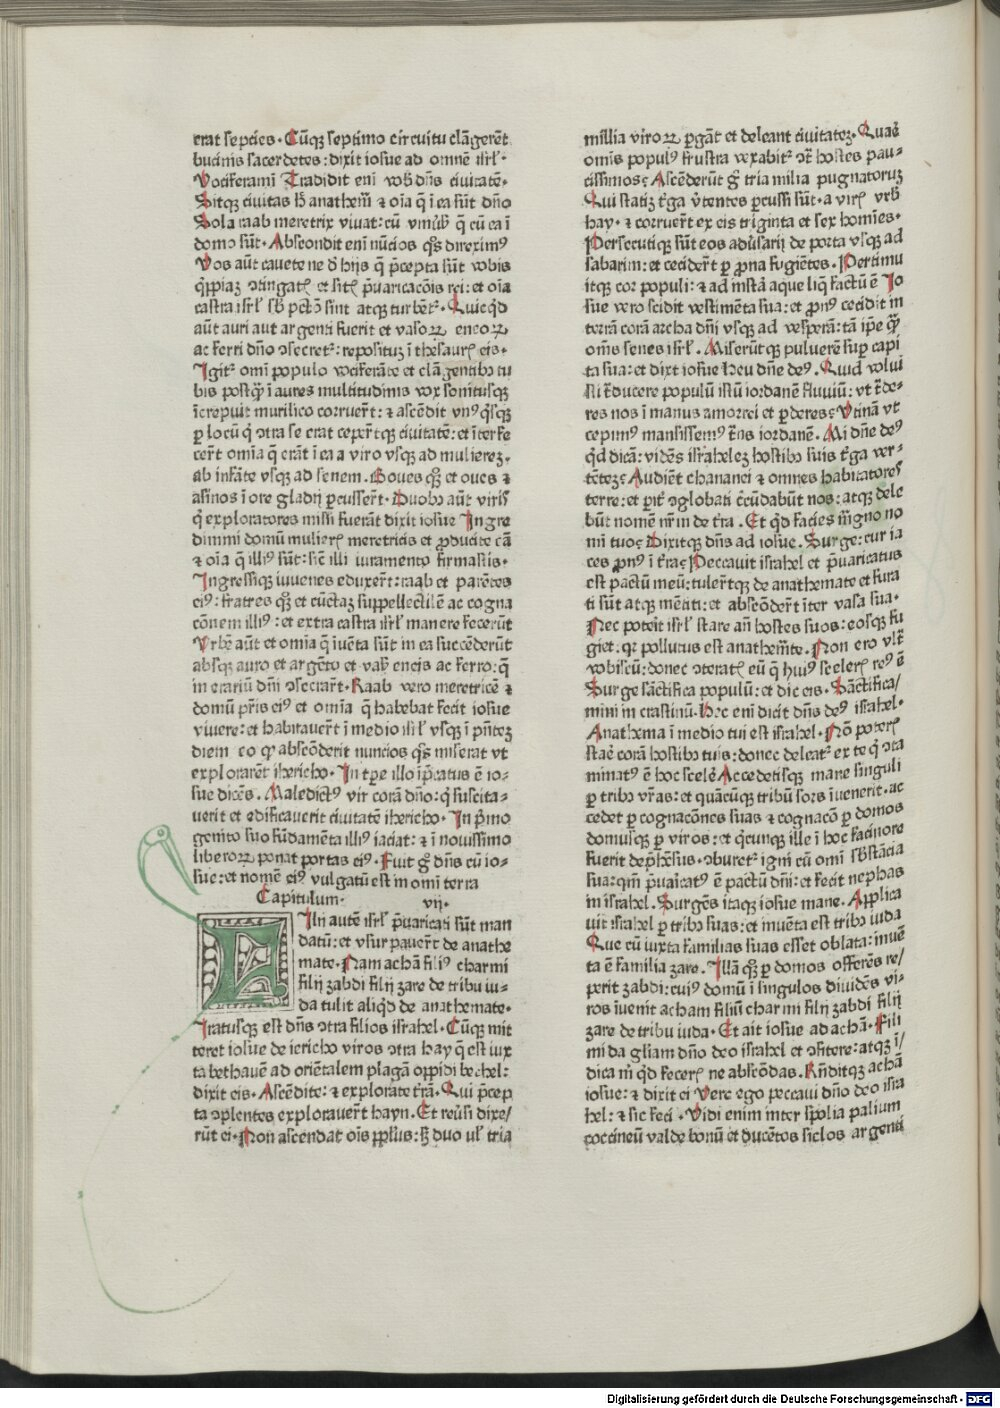 erat septies. Cūqꝫ septimo circuitu clāgerēt
bucinis sacerdetes: dixit iosue ad omnē isrl̓.
Vociferamī Tradidit enī vob̄ dn̄s ciuitatē.
Sitqꝫ ciuitas h̄ anathem̄ ⁊ oīa q̄ ī ea sūt dn̄o
Sola raab meretrix viuat: cū vniūb̓ q̄ cū ea ī
domo sūt. Abscondit enī nūcios qͦs direximꝰ
Vos aūt cauete ne d̓ hijs q̄ p̄cepta sūt vobis
q̄ppiaꝫ ↄtingatꝭ et sitꝭ p̄uaricacōis rei: et oīa
castra isrl̓ sb̓ pctō sint atqꝫ turbēt᷑. Quicqd
aūt auri aut argenti fuerit et vasoꝝ eneoꝝ
ac ferri dn̄o ↄsecret᷑: repositum ī thesaurꝭ eis.
Igit᷑ omī populo vociferāte et clāgentibꝰ tu
bis postqꝫ̄ ī aures multitudinis vox sonitusqꝫ
īcrepuit murilico corruer̄t: ⁊ ascēdit vnꝰ qͥsqꝫ
ꝑ locū q̄ ↄtra se erat ceper̄tqꝫ ciuitatē: et īterfe
cer̄t omīa q̄ erāt ī ea a viro vsqꝫ ad mulierez.
ab infāte vsqꝫ ad senem. Boues qͦqꝫ et oues ⁊
asinos ī ore gladij ꝑcusser̄t. Duobꝰ aūt viris
q̄ exploratores missi fuerāt dixit iosue Ingre
dimini domū mulierꝭ meretricis et ꝓducite eā
⁊ oīa q̄ illiꝰ sūt: sic̄ illi iuramento firmastis.
Ingressiqꝫ iuuenes eduxer̄t: raab et parētes
eiꝰ: fratres qͦqꝫ et cūctaꝫ suppellectilē ac cogna
cōnem illiꝰ: et extra castra isrl̓ manere fecerūt
Vrbē aūt et omīa q̄ iuēta sūt in ea succēderūt
absqꝫ auro et argēto et vasb̓ eneis ac ferro: q̄
in erariū dn̄i ↄsecrar̄t. Raab vero meretricē ⁊
domū pr̄is eiꝰ et omīa q̄ habebat fecit iosue
viuere: et habitauer̄t ī medio isrl̓ vsqꝫ ī pn̄teꝫ
diem eo ꝙ abscōderit nuncios qͦs miserat vt
explorarēt iherichо. In tꝑe illo īp̄catus ē io-
sue dicēs. Maledictꝰ vir corā dn̄o: q̄ suscita-
uerit et edificauerit ciuitatē iherichо. In p̄mo
genito suo fūdamēta illiꝰ iaciat: ⁊ ī nouissimo
liberoꝝ ponat portas eiꝰ. Fuit gͦ dn̄s cū io-
sue: et nomē eiꝰ vulgatū est in omī terra
Capitulum. vij.
FIlij autē isrl̓ p̄uaricati sūt man
datū: et vsurpauer̄t de anathe
mate. Nam achā filiꝰ charmi
filij zabdi filij zare de tribu iu-
da tulit aliqd de anathemate.
Iratusqꝫ est dn̄s ↄtra filios israhel. Cūqꝫ mit
teret iosue de iericho viros ↄtra hay q̄ est iux
ta bethauē ad oriētalem plagā oppidi bechel:
dixit eis. Ascēdite: ⁊ explorate t̄rā. Qui p̄cep
ta ↄplentes explorauer̄t hayn. Et reūsi dixe/
rūt ei. Non ascendat oīs ppl̓us: sꝫ duo ul̓ tria
millia viroꝝ ꝑgāt et deleant ciuitatez. Quar̄
omīs populꝰ frustra vexabit᷑ ↄ̄t hostes pau-
cissimos? Ascēderūt gͦ tria milia pugnatoruꝫ
Qui statiꝫ t̄ga v̄tentes ꝑcussi sūt. a virꝭ vrb̓
hay. ⁊ corruer̄t ex eis triginta et sex homīes.
Persecutiqꝫ sūt eos adūsarij de porta vsqꝫ ad
sabarim: et cecider̄t ꝑ ꝓna fugiētes. Pertimu
itqꝫ cor populi: ⁊ ad īstar̄ aque liq̄ factū ē Io
sue vero scidit vestimēta sua: et ꝓnꝰ cecidit in
terrā corā archa dn̄i vsqꝫ ad vesperā: tā ip̄e qꝫ̄
om̄s senes isrl̓. Miserūtqꝫ puluerē suꝑ capi
ta sua: et dixt iosue Heu dn̄e deꝰ. Quid volui
sti t̄ducere populū istū iordanē fluuiū: vt t̄de-
res nos ī manus amorrei et ꝑderes? Vtinā vt
cepimꝰ mansissemꝰ t̄ns iordanē. Mi dn̄e deꝰ
qd dicā: vidēs israhelez hostibꝰ suis t̄ga ver-
tētez? Audiēt chananei ⁊ omnes habitatores
terre: et ꝑit᷑ ↄglobati c̄cūdabūt nos: atqꝫ dele
būt nomē nr̄m de t̄ra. Et qd facies m̄gno no
mī tuo? Dixitqꝫ dn̄s ad iosue. Surge: cur ia
ces ꝓnꝰ ī t̄ra? Peccauit israhel et p̄uaricatus
est pactū meū: tuler̄tqꝫ de anathemate et fura
ti sūt atqꝫ mētiti: et abscōder̄t īter vasa sua.
Nec poteit isrl̓ stare an̄ hostes suos: eosqꝫ fu
giet. qꝛ pollutus est anathem̄te. Non ero vlt̄
vobiscū: donec ↄteratꝭ eū q̄ huiꝰ scelerꝭ reꝰ ē
Surge sāctifica populū: et dic eis. Sāctifica/
mini in crastinū. Hec enī dicit dn̄s deꝰ israhel.
Anathema ī medio tui est israhel. Nō poterꝭ
star̄ corā hostibꝰ tuis: donec deleat᷑ ex te q̄ ↄta
minatꝰ ē hoc scelēr̄ Accedetisqꝫ mane singuli
ꝑ tribꝰ vr̄as: et quācūqꝫ tribū sors īuenerit. ac
cedet ꝑ cognacōnes suas ⁊ cognacō ꝑ domos
domusqꝫ ꝑ viros: et qͥcunqꝫ ille ī hoc facinore
fuerit dep̄hēsus. ↄburet᷑ igni cū omī sb̄stācia
sua: qm̄ p̄uar̄icatꝰ ē pactū dn̄i: et fecit nephas
in israhel. Surgēs itaqꝫ iosue mane. Applica
uit israhel ꝑ tribꝰ suas: et inuēta est tribꝰ iuda
Que cū iuxta familias suas esset oblata: inuē
ta ē familia zare. Illā qͦqꝫ ꝑ domos offerēs re/
perit zabdi: cuiꝰ domū ī singulos diuidēs vi-
ros īuenit acham filiū charmi filij zabdi filij
zare de tribu iuda. Et ait iosue ad achā. Fili
mi da gliam dn̄o deo israhel et ↄfitere: atqꝫ ī/
dica m̄ qd fecerꝭ ne abscōdas. Rn̄ditqꝫ achā
iosue: ⁊ dixit ei Vere ego peccaui dn̄o deo isra
hel: ⁊ sic feci. Vidi enim inter spolia palium
coccineū valde bonū et ducētos siclos argenti
Digitalisierung gefördert durch die Deutsche Forschungsgemeinschaft - DFG